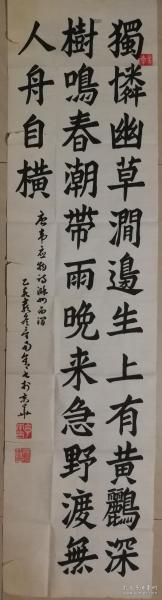 獨憐幽草澗邊生上有黃鸝深
樹鳴春潮帶雨晚来急野渡無
人舟自橫
唐韦应物诗滁州西涧